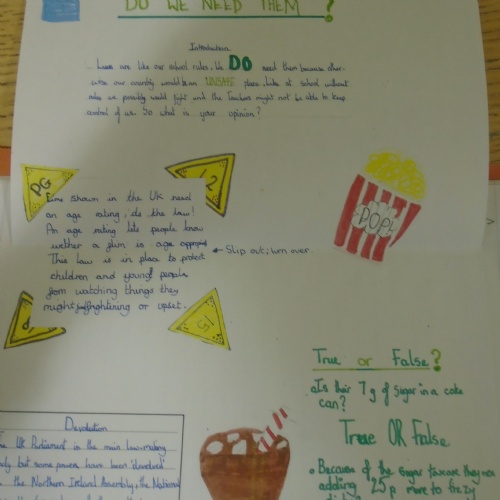 DO WE NEED THEM ?
Introduction
Laws are like our school rules. We DO need them because other-
wise our country would be an UNSAFE place. Like at school without
rules we possibly would fight and the teachers might not be able to keep
control of us. So what is your opinion?
PG
12
Films shown in the UK need
an age rating, it's the law!
An age rating lets people know
wether a film is age appropriate
This law is in place to protect
children and young people
from watching things they
might find frightening or upset.
← Slip out, turn over.
15
POP
True or False?
Is their 7g of sugar in a coke
can?
True OR False
Because of the sugar tax are they now
adding 25p more to fizzy
Devolution
The UK Parliament is the main law-making
body but some powers have been devolved
the Northern Ireland Assembly, the National